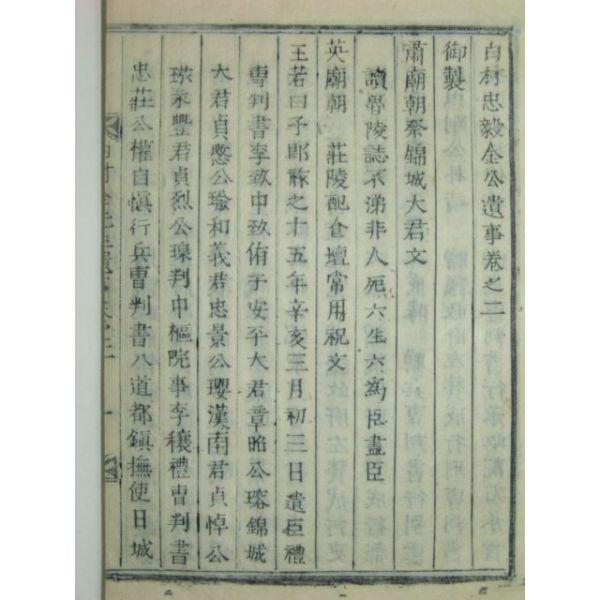 白村忠毅金公遺事卷之二
御製
肅廟朝祭錦城大君文
讀魯陵誌不涕非人死六生六爲臣盡臣
英廟朝　莊陵配食壇常用祝文
王若曰予卽祚之十五年辛亥三月初三日遣臣禮
曺判書李致中致侑于安平大君章昭公瑢錦城
大君貞愍公瑜和義君忠景公瓔漢南君貞悼公
𤥽永豐君貞烈公瑔判中樞院事李穰禮曺判書
忠莊公權自愼行兵曺判書八道都鎭撫使日城